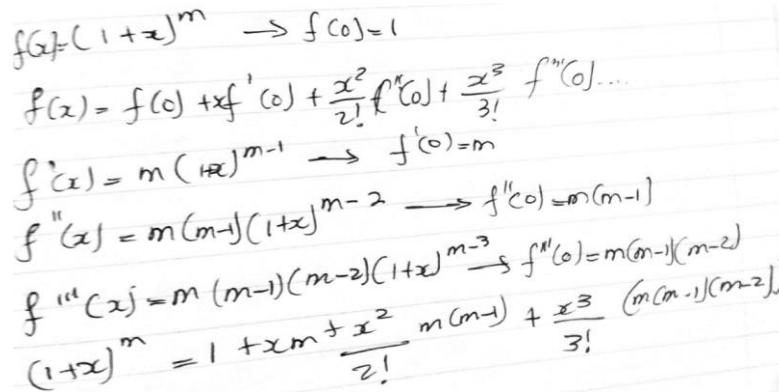 f(x)=(1+x)^m → f(0)=1
f(x) = f(0) + xf'(0) + x²/2! f''(0) + x³/3! f'''(0)....
f'(x) = m(1+x)^{m-1} → f'(0)=m
f''(x) = m(m-1)(1+x)^{m-2} → f''(0)=m(m-1)
f'''(x) = m(m-1)(m-2)(1+x)^{m-3} → f'''(0)=m(m-1)(m-2)
(1+x)^m = 1 + xm + x²/2! m(m-1) + x³/3! (m(m-1)(m-2)